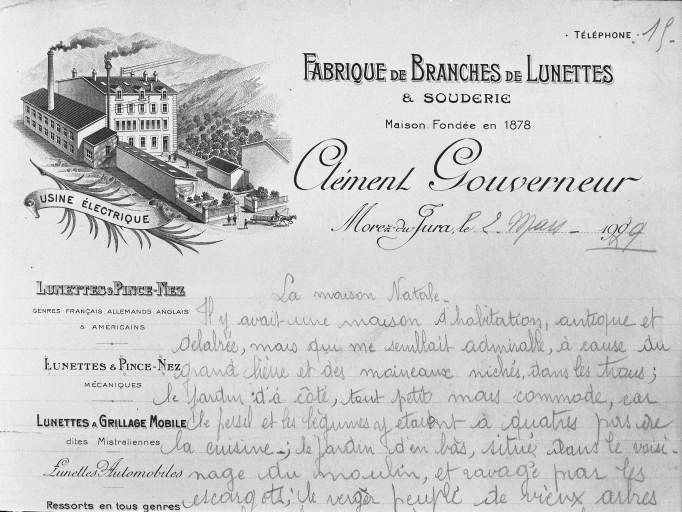 · TÉLÉPHONE · 15.
FABRIQUE DE BRANCHES DE LUNETTES
& SOUDERIE
Maison Fondée en 1878
Clément Gouverneur
Morez-du-Jura, le 2 Mars 1909
USINE ÉLECTRIQUE
LUNETTES & PINCE-NEZ
GENRES FRANÇAIS, ALLEMANDS, ANGLAIS
& AMERICAINS
LUNETTES & PINCE-NEZ
MÉCANIQUES
LUNETTES A GRILLAGE MOBILE
dites Mistraliennes
Lunettes Automobiles
Ressorts en tous genres
La maison Natale.
Il y avait une maison d'habitation, antique et
délabrée, mais qui me semblait admirable, à cause du
grand lierre et des moineaux nichés, dans les trous ;
le Jardin d'à côté, tout petit mais commode, car
le persil et les légumes y étaient à quatres pas de
la cuisine - ; le Jardin d'en bas, situé dans le voisi-
nage du moulin, et ravagé par les
escargots ; le verger peuplé de vieux arbres